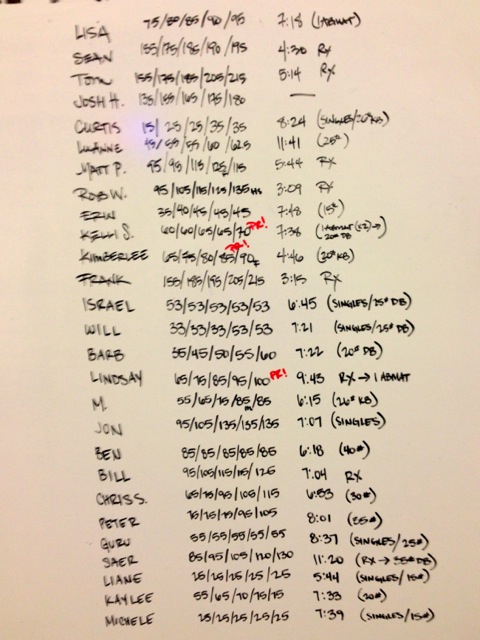 LISA 75/80/85/90/95 7:18 (1 ABMAT)
SEAN 155/175/185/190/195 4:30 RX
TOM 155/175/185/205/215 5:14 RX
JOSH H. 135/155/165/175/180 —
CURTIS 15/ 25/25/35/35 8:24 (SINGLES/20# KB)
LUANNE 45/55/55/60/62.5 11:41 (25#)
MATT P. 95/95/115/125/115 5:44 RX
ROB W. 95/105/115/125/135 HS 3:09 RX
ERIN 35/40/45/45/45 7:48 (15#)
KELLI S. 60/60/65/65/70 PR! 7:38 (1 ABMAT 20# DB
KIMBERLEE 65/75/80/85/90 F PR! 4:46 (20# KB)
FRANK 155/185/195/205/215 3:15 RX
ISRAEL 53/53/53/53/53 6:45 (SINGLES/25# DB)
WILL 33/33/33/53/53 7:21 (SINGLES/25# DB)
BARB 35/45/50/55/60 7:22 (20# DB)
LINDSAY 65/75/85/95/100 PR! 9:43 RX → 1 ABMAT
M. 55/65/75/85/85 m 6:15 (26# KB)
JON 95/105/135/135/135 7:07 (SINGLES)
BEN 85/85/85/85/85 6:18 (40#)
BILL 95/105/115/115/125 7:04 RX
CHRIS S. 65/75/95/105/115 6:53 (30#)
PETER 75/75/75/95/105 8:01 (35#)
GURU 55/55/55/55/55 8:37 (SINGLES/25#)
SAER 85/95/105/120/130 11:20 (RX → 35# DB)
LIANE 25/25/25/25/25 5:44 (SINGLES/15#)
KAYLEE 55/65/70/75/75 7:33 (20#)
MICHELE 25/25/25/25/25 7:39 (SINGLES/15#)